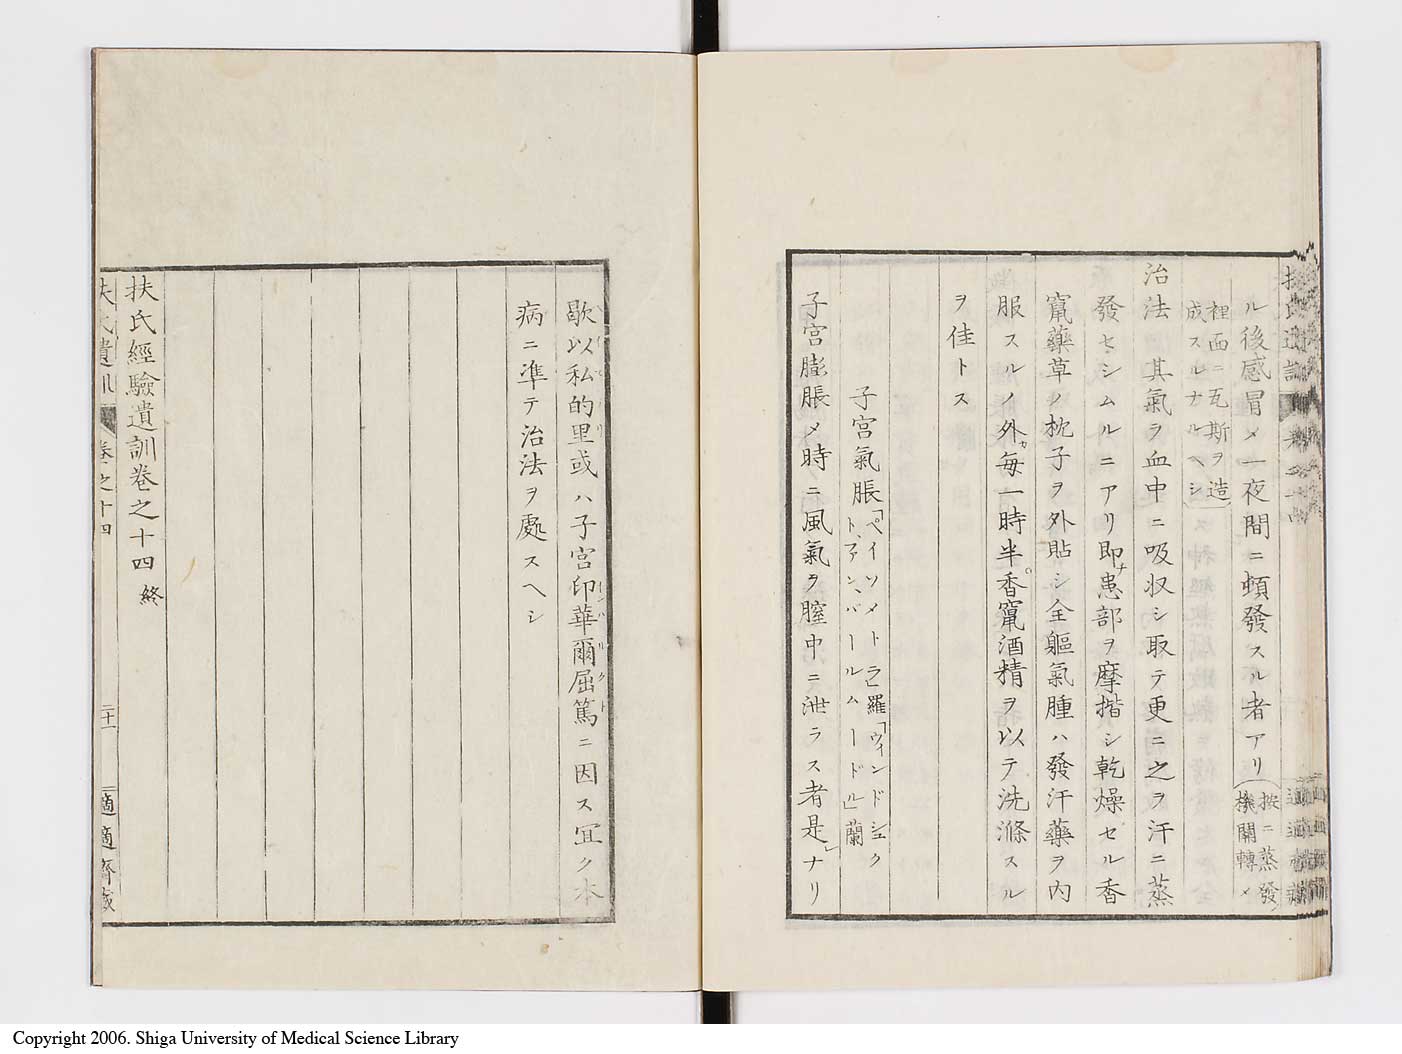 ル後感冒メ一夜間ニ頓發スル者アリ(按ニ蒸發ノ機關轉メ
裡面ニ瓦斯ヲ造成スルナルヘシ)
治法 其氣ヲ血中ニ吸収シ取テ更ニ之ヲ汗ニ蒸
發セシムルニアリ即チ患部ヲ摩揩シ乾燥セル香
竄藥草ノ枕子ヲ外貼シ全軀氣腫ハ發汗藥ヲ內
服スルノ外毎一時半香竄酒精ヲ以テ洗滌スル
ヲ佳トス
子宮氣脹「ペイソメトラ」羅「ウィンドシュクト、アン、バールムードル」蘭
子宮膨脹メ時ニ風氣ヲ腟中ニ泄ラス者是ナリ
歇以私的里或ハ子宮印華爾屈篤ニ因ス宜ク本
病ニ準テ治法ヲ處スヘシ
扶氏經驗遺訓卷之十四 終
扶氏遺訓 卷之十四 二十一 適適齋藏
Copyright 2006. Shiga University of Medical Science Library